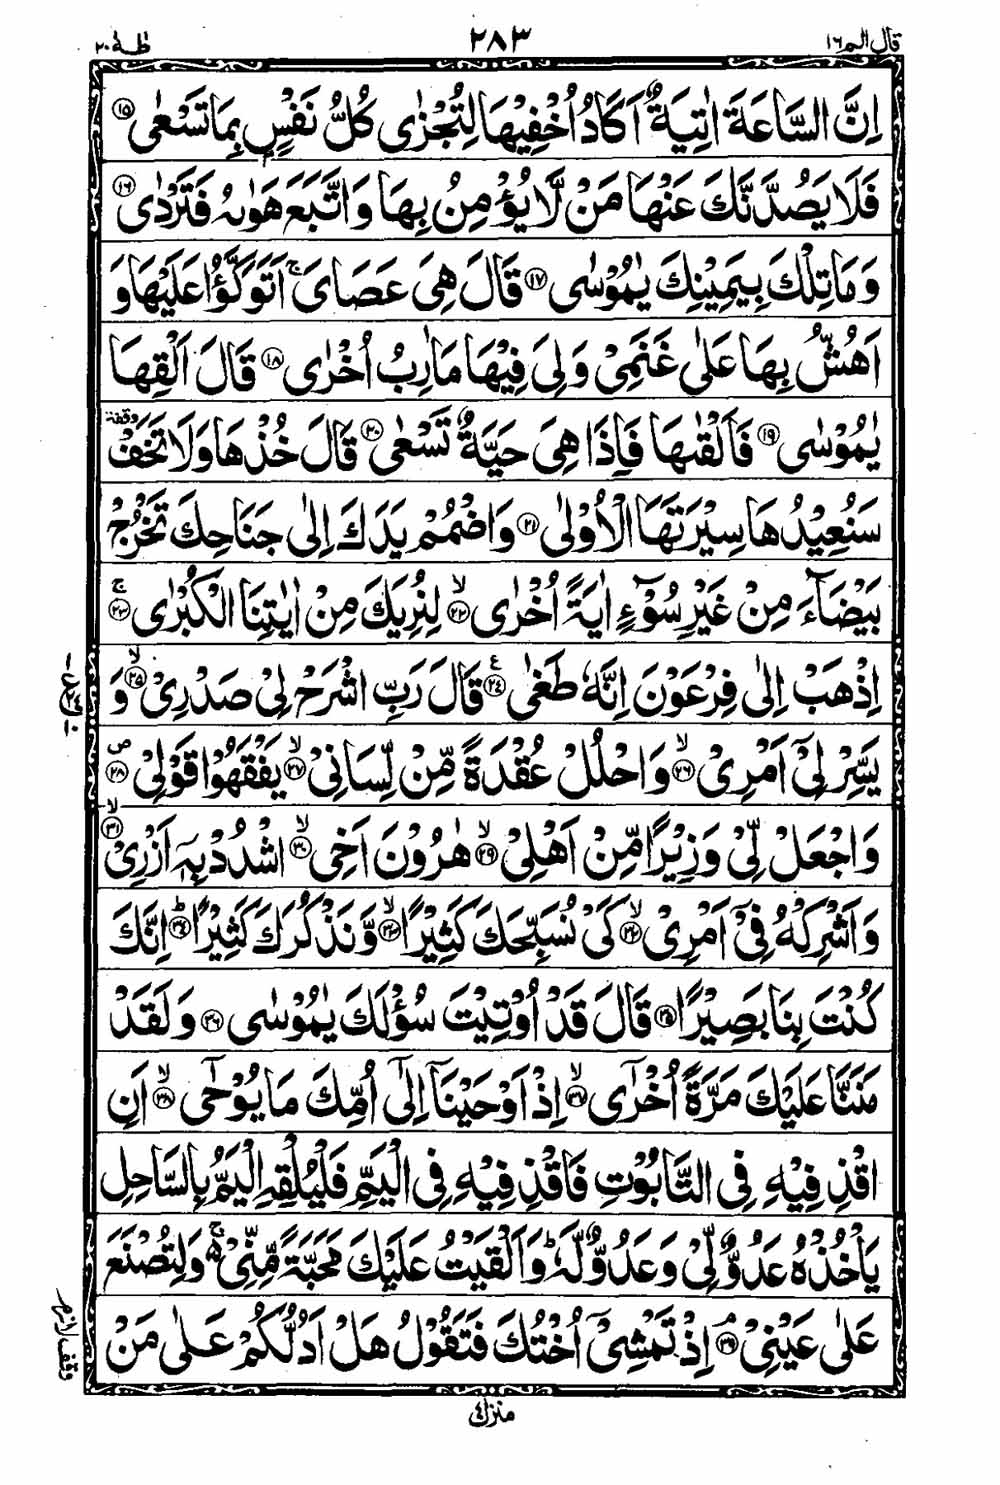 قال الم ١٦ ٢٨٣ طٰهٰ ٢٠
اِنَّ السَّاعَةَ اٰتِيَةٌ اَكَادُ اُخْفِيْهَا لِتُجْزٰى كُلُّ نَفْسٍۭ بِمَا تَسْعٰى ١٥
فَلَا يَصُدَّنَّكَ عَنْهَا مَنْ لَّا يُؤْمِنُ بِهَا وَاتَّبَعَ هَوٰىهُ فَتَرْدٰى ١٦
وَمَا تِلْكَ بِيَمِيْنِكَ يٰمُوْسٰى ١٧ قَالَ هِىَ عَصَاىَ ۚ اَتَوَكَّؤُا عَلَيْهَا وَ
اَهُشُّ بِهَا عَلٰى غَنَمِىْ وَلِىَ فِيْهَا مَاٰرِبُ اُخْرٰى ١٨ قَالَ اَلْقِهَا
يٰمُوْسٰى ١٩ فَاَلْقٰىهَا فَاِذَا هِىَ حَيَّةٌ تَسْعٰى ٢٠ قَالَ خُذْهَا وَلَا تَخَفْ وقفة
سَنُعِيْدُهَا سِيْرَتَهَا الْاُوْلٰى ٢١ وَاضْمُمْ يَدَكَ اِلٰى جَنَاحِكَ تَخْرُجْ
بَيْضَآءَ مِنْ غَيْرِ سُوْٓءٍ اٰيَةً اُخْرٰى ۙ ٢٢ لِنُرِيَكَ مِنْ اٰيٰتِنَا الْكُبْرٰى ۚ ٢٣
اِذْهَبْ اِلٰى فِرْعَوْنَ اِنَّهٗ طَغٰى ع ٢٤ قَالَ رَبِّ اشْرَحْ لِىْ صَدْرِىْ ۙ ٢٥ وَ
يَسِّرْ لِىْٓ اَمْرِىْ ۙ ٢٦ وَاحْلُلْ عُقْدَةً مِّنْ لِّسَانِىْ ۙ ٢٧ يَفْقَهُوْا قَوْلِىْ ص ٢٨
وَاجْعَلْ لِّىْ وَزِيْرًا مِّنْ اَهْلِىْ ۙ ٢٩ هٰرُوْنَ اَخِى ۙ ٣٠ اشْدُدْ بِهٖٓ اَزْرِىْ ۙ ٣١
وَاَشْرِكْهُ فِىْٓ اَمْرِىْ ۙ ٣٢ كَىْ نُسَبِّحَكَ كَثِيْرًا ۙ ٣٣ وَّنَذْكُرَكَ كَثِيْرًا ؕ ٣٤ اِنَّكَ
كُنْتَ بِنَا بَصِيْرًا ٣٥ قَالَ قَدْ اُوْتِيْتَ سُؤْلَكَ يٰمُوْسٰى ٣٦ وَلَقَدْ
مَنَنَّا عَلَيْكَ مَرَّةً اُخْرٰٓى ۙ ٣٧ اِذْ اَوْحَيْنَآ اِلٰٓى اُمِّكَ مَا يُوْحٰٓى ۙ ٣٨ اَنِ
اقْذِفِيْهِ فِى التَّابُوْتِ فَاقْذِفِيْهِ فِى الْيَمِّ فَلْيُلْقِهِ الْيَمُّ بِالسَّاحِلِ
يَاْخُذْهُ عَدُوٌّ لِّىْ وَعَدُوٌّ لَّهٗ ؕ وَاَلْقَيْتُ عَلَيْكَ مَحَبَّةً مِّنِّىْ ۚ وَلِتُصْنَعَ
عَلٰى عَيْنِىْ ۘ ٣٩ اِذْ تَمْشِىْٓ اُخْتُكَ فَتَقُوْلُ هَلْ اَدُلُّكُمْ عَلٰى مَنْ
وقف لازم
منزل ٤